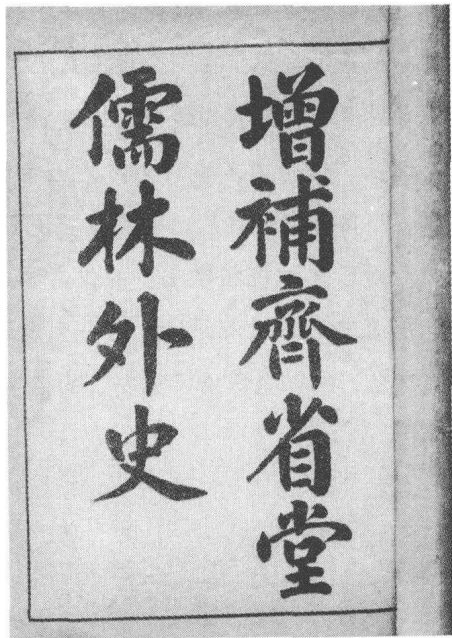 增補齊省堂
儒林外史